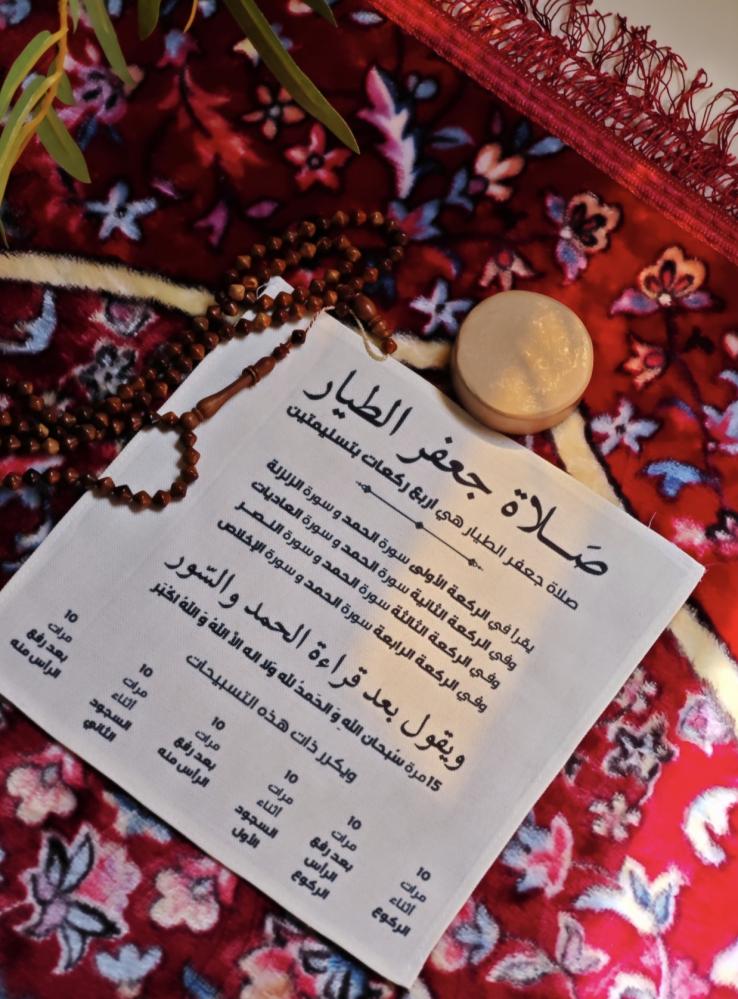 صَلاة جعفر الطيار
صلاة جعفر الطيار هي اربع ركعات بتسليمتين
يقرا في الركعة الأولى سورة الحمد و سورة الزلزلة
وفي الركعة الثانية سورة الحمد و سورة العاديات
وفي الركعة الثالثة سورة الحمد و سورة النصر
وفي الركعة الرابعة سورة الحمد و سورة الإخلاص
ويقول بعد قراءة الحمد والسّور
15مرة سُبحان الله وَ الحَمدُ لله وَلا اله الأ اللهُ وَ اللهُ اكْبَر
ويكرر ذات هذه التسبيحات
10
مرات
أثناء
الركوع
10
مرات
بعد رفع
الراس
الركوع
10
مرات
أثناء
السجود
الأول
10
مرات
بعد رفع
الراس منه
10
مرات
أثناء
السجود
الثاني
10
مرات
بعد رفع
الراس منه